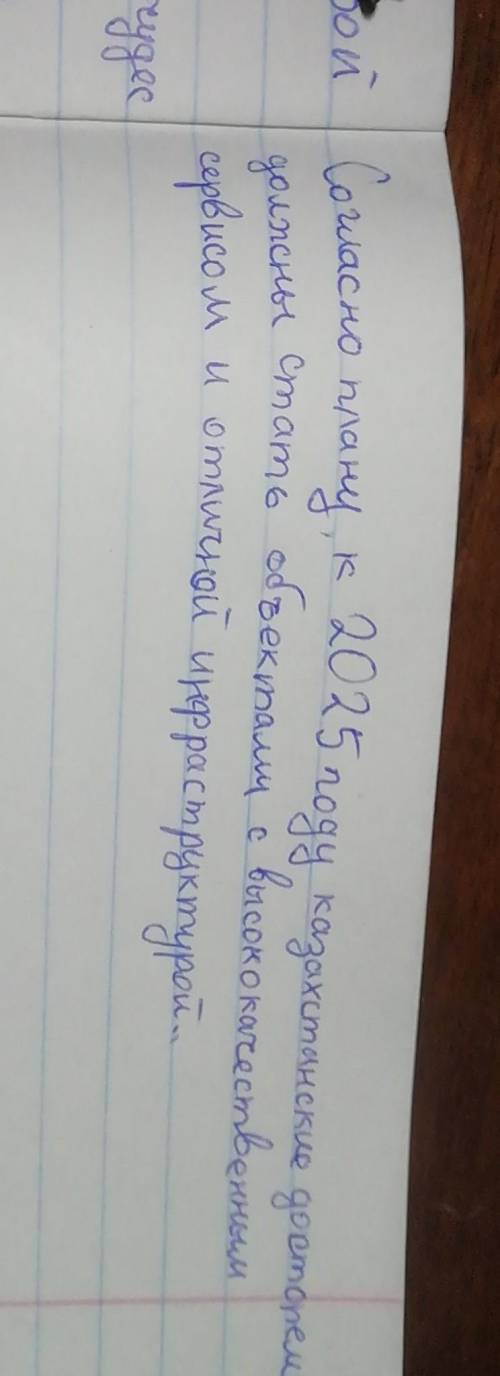 Согласно плану, к 2025 году казахстанские достопем
должны стать объектами с высококачественным
сервисом и отличной инфраструктурой„
чудес